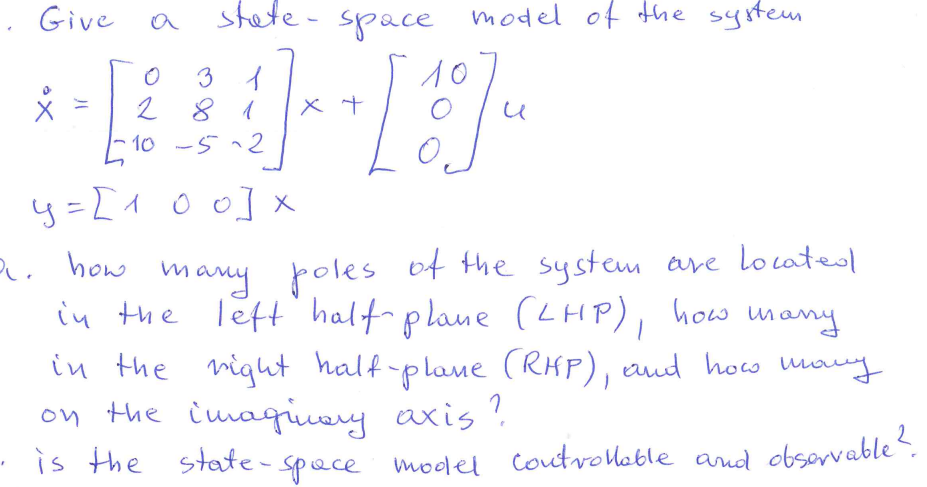 . Give a state-space model of the system
ẋ = [ 0 3 1 ; 2 8 1 ; -10 -5 -2 ] x + [ 10 ; 0 ; 0 ] u
y = [ 1 0 0 ] x
a. how many poles of the system are located
in the left half-plane (LHP), how many
in the right half-plane (RHP), and how many
on the imaginary axis?
. is the state-space model controllable and observable?